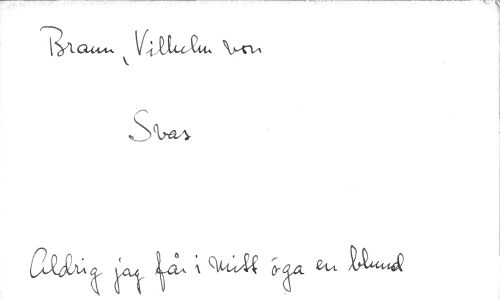 Braun, Vilhelm von
Svar
Aldrig jag får i mitt öga en blund